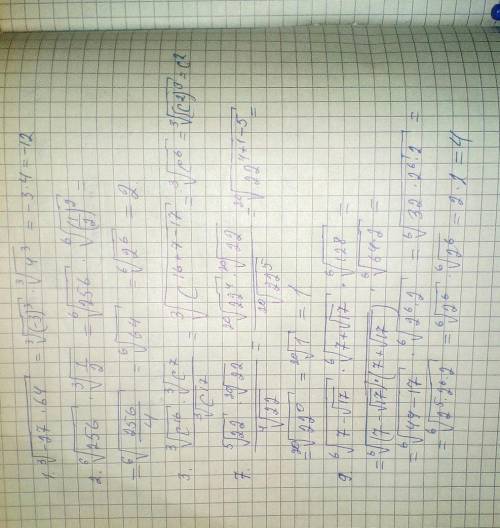 1. ∛(-27 · 64) = ∛(-3)³ · ∛4³ = -3 · 4 = -12
2. ⁶√256 · ∛(1/2) = ⁶√256 · ⁶√(1/2)² =
= ⁶√(256/4) = ⁶√64 = ⁶√2⁶ = 2
3. (∛c¹⁶ · ∛c⁷)/∛c¹⁷ = ∛(c^(16+7-17)) = ∛c⁶ = ∛(c²)³ = c²
7. (⁵√22 · ²⁰√22)/⁴√22 = (²⁰√22⁴ · ²⁰√22)/²⁰√22⁵ = ²⁰√(22^(4+1-5)) =
= ²⁰√22⁰ = ²⁰√1 = 1
9. ⁶√(7-√17) · ⁶√(7+√17) · ⁶√128 =
= ⁶√((7-√17)·(7+√17)) · ⁶√(64·2) =
= ⁶√(49-17) · ⁶√(2⁶·2) = ⁶√(32 · 2⁶ · 2) =
= ⁶√(2⁵·2⁶·2) = ⁶√2⁶ · ⁶√2⁶ = 2 · 2 = 4